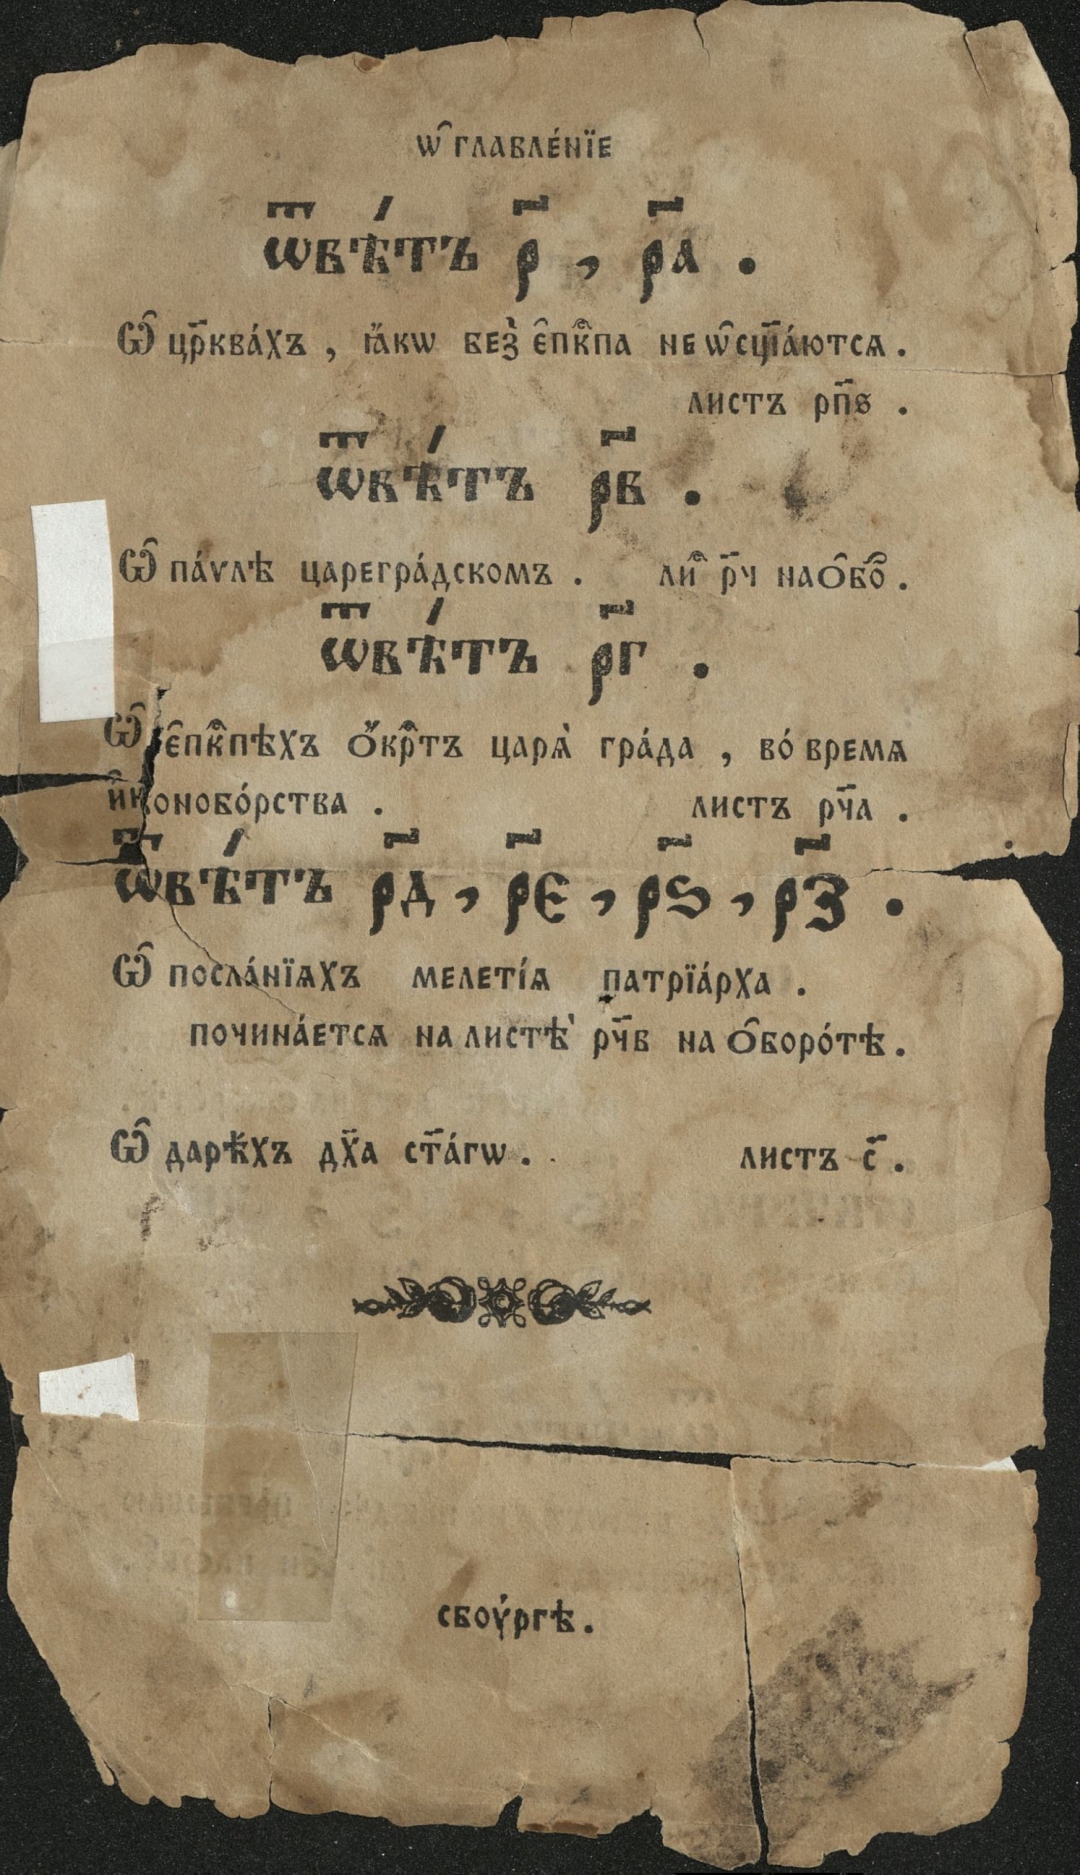 ѡ҆главле́нїе
ѿвѣ́тъ р҃ , р҃а .
Ѡ҆ цр҃ква́хъ , ꙗ҆́кѡ без̾ є҆пⷭ҇кпа не ѡ҆сщ҃а́ютсѧ .
листъ рп҃ѕ .
ѿвѣ́тъ р҃в .
Ѡ҆ па́ѵлѣ цареgра́дскомъ . лиⷭ҇ р҃ч на ѻ҆боⷪ҇ .
ѿвѣ́тъ р҃г .
Ѡ҆ є҆пⷭ҇кпѣхъ ѻ҆́крⷭ҇тъ царѧ̀ гра́да , во́ времѧ
и҆конобо́рства . листъ рч҃а .
ѿвѣ́тъ р҃д , р҃є , р҃ѕ , р҃з .
Ѡ҆ посла́нїѧхъ мелеті́ѧ патрїа́рха .
почина́етсѧ на листѣ̀ рч҃в на ѻ҆боро́тѣ .
Ѡ҆ дарѣ́хъ дх҃а ст҃а́гѡ . листъ с҃ .
сбоу́ргѣ .